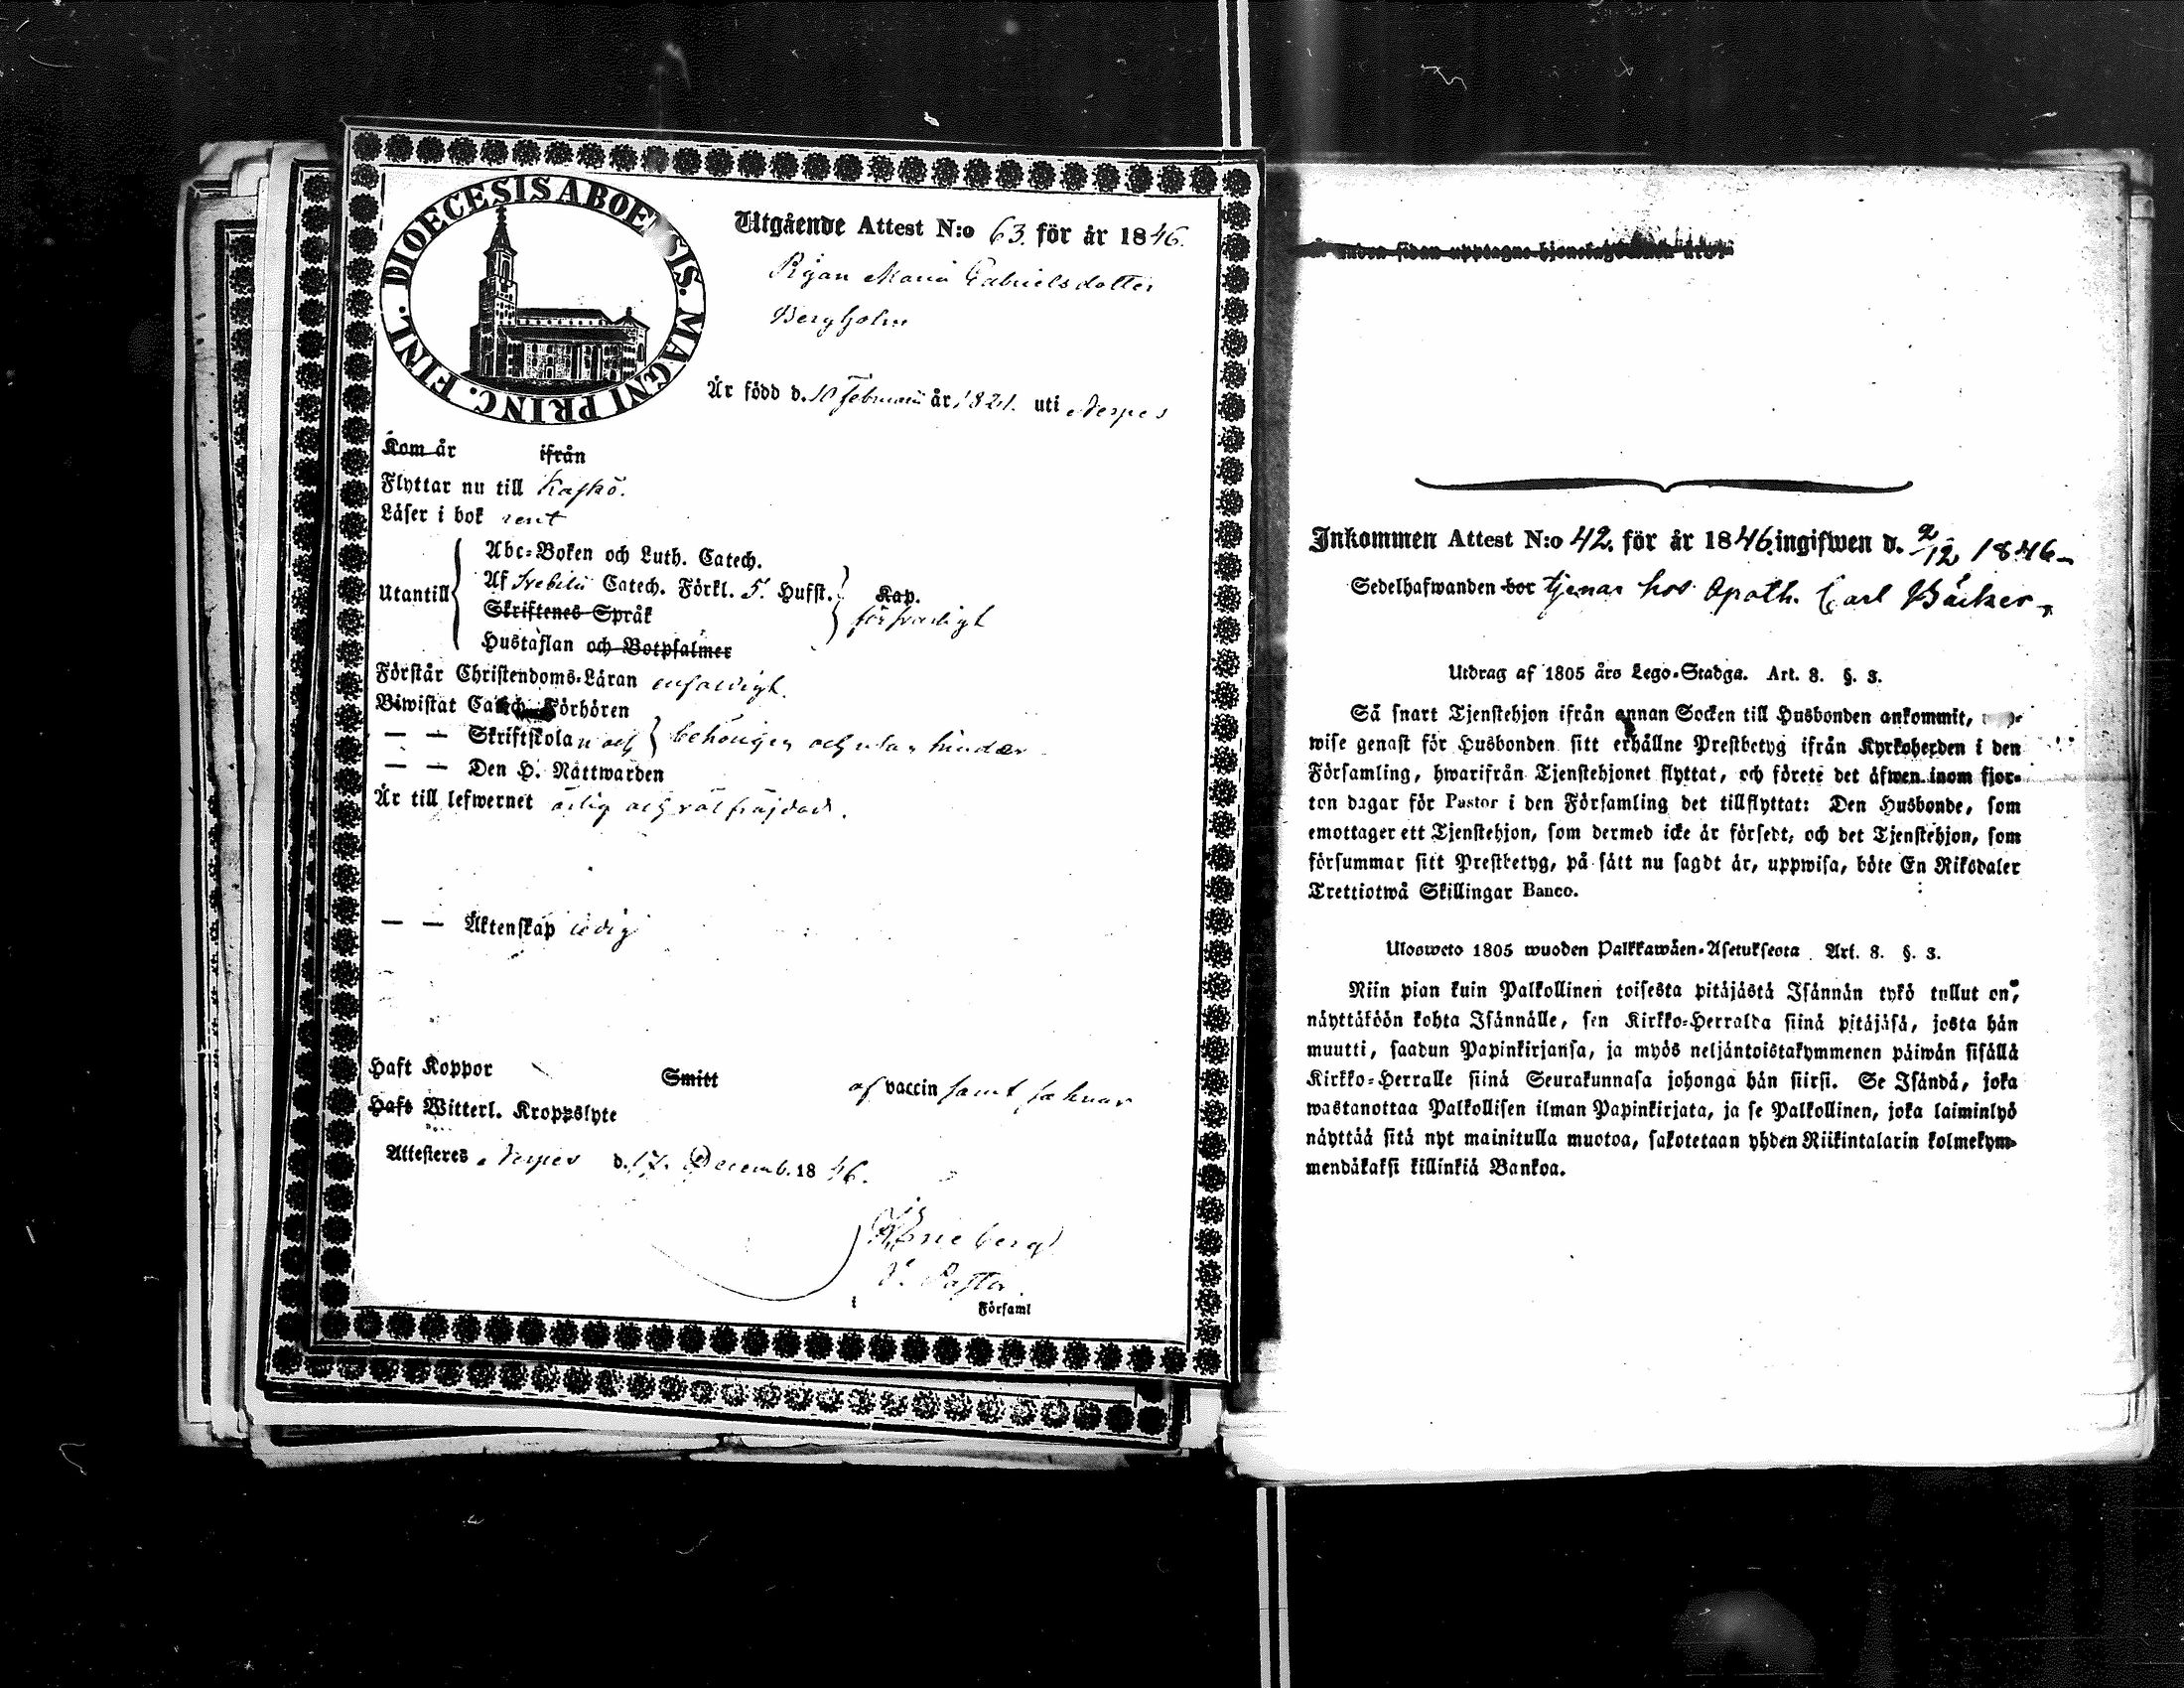 DIOECESIS ABOENSIS. MAGNI PRINC. FINL.
Utgående Attest N:o 63. för år 1846.
Pigan Maria Gabrielsdotter
Bergholm
Är född d. 10 Februarii år 1821. uti Nerpes
Kom år ifrån
Flyttar nu till Kaskö.
Läser i bok rent
Utantill
Abc-Boken och Luth. Catech.
Af Svebilii Catech. Förkl. 5. Hufst.
Skriftenes Språk
Hustaflan och Botpsalmer
Kap.
försvarligt
Förstår Christendoms-Läran enfaldigt.
Biwistat Catech. Förhören
— — Skriftskolan och behörigen och utan hinder
— — Den H. Nattwarden
Är till lefwernet ärlig och välfräjdad.
— — Äktenskap ledig
Haft Koppor Smitt af vaccin samt saknar
Haft Witterl. Kroppslyte
Attesteres Nerpes d. 17. Decemb. 1846.
V. Pastor.
i Församl
undra sidan upptagne
Inkommen Attest N:o 42. för år 1846. ingifwen d. 2/12 1846
Sedelhafwanden bor tjenar hos Apoth. Carl Bäcker
Utdrag af 1805 års Lego-Stadga. Art. 8. §. 3.
Så snart Tjenstehjon ifrån annan Socken till Husbonden ankommit,
wise genast för Husbonden sitt erhållne Prestbetyg ifrån Kyrkoherden i den
Församling, hwarifrån Tjenstehjonet flyttat, och förete det äfwen inom fjor-
ton dagar för Pastor i den Församling det tillflyttat: Den Husbonde, som
emottager ett Tjenstehjon, som dermed icke är försedt, och det Tjenstehjon, som
försummar sitt Prestbetyg, på sätt nu sagdt är, uppwisa, böte En Riksdaler
Trettiotwå Skillingar Banco.
Ulosweto 1805 wuoden Palkkawäen-Asetuksesta Art. 8. §. 3.
Niin pian kuin Palkollinen toisesta pitäjästä Isännän tykö tullut on,
näyttäköön kohta Isännälle, sen Kirkko-Herralda siinä pitäjäsä, josta hän
muutti, saadun Papinkirjansa, ja myös neljäntoistakymmenen päiwän sisällä
Kirkko-Herralle siinä Seurakunnasa johonga hän siirsi. Se Isändä, joka
wastanottaa Palkollisen ilman Papinkirjata, ja se Palkollinen, joka laiminlyö
näyttää sitä nyt mainitulla muotoa, sakotetaan yhden Riikintalarin kolmekym-
mendäkaksi killinkiä Bankoa.